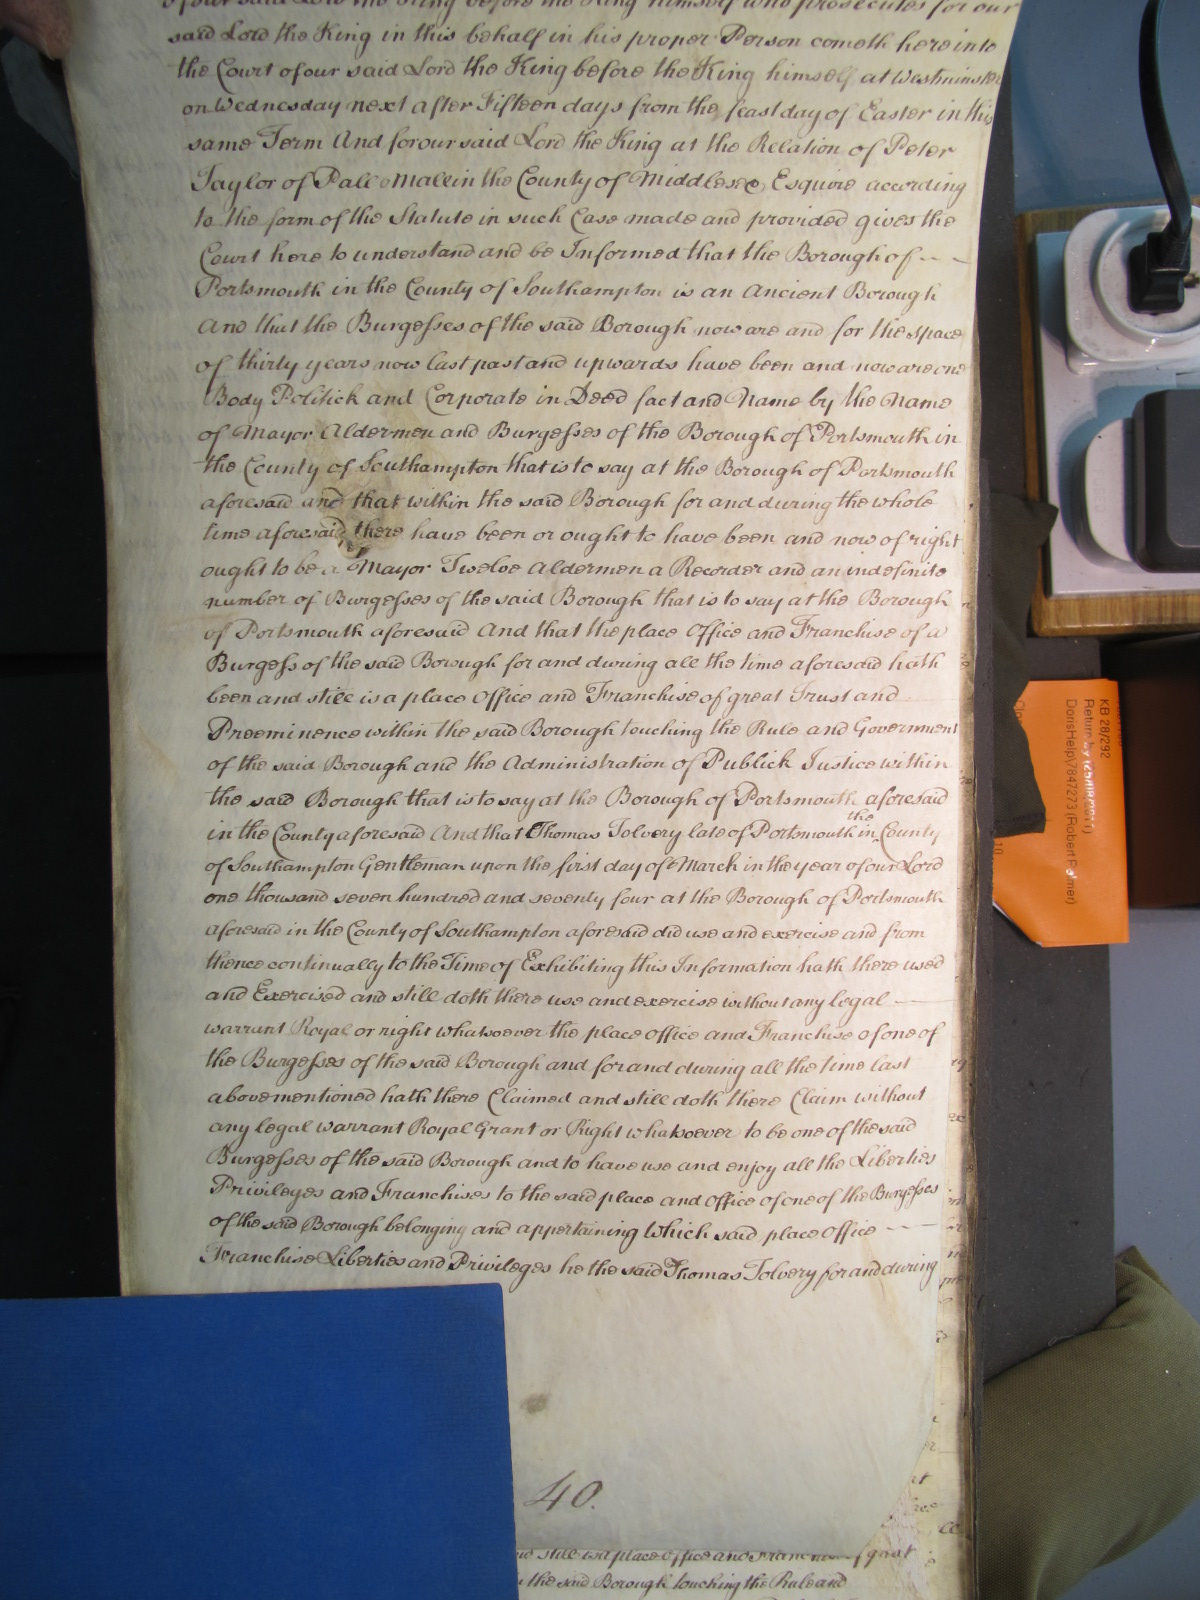 of our said Lord the King before the King himself who prosecutes for our
said Lord the King in this behalf in his proper Person cometh here into
the Court of our said Lord the King before the King himself at Westminster
on Wednesday next after Fifteen days from the feast day of Easter in this
same Term And for our said Lord the King at the Relation of Peter
Taylor of Pall Mall in the County of Middlesex Esquire according
to the form of the Statute in such Case made and provided gives the
Court here to understand and be Informed that the Borough of
Portsmouth in the County of Southampton is an Ancient Borough
And that the Burgesses of the said Borough now are and for the space
of thirty years now last past and upwards have been and now are one
Body Politick and Corporate in Deed fact and Name by the Name
of Mayor Aldermen and Burgesses of the Borough of Portsmouth in
the County of Southampton that is to say at the Borough of Portsmouth
aforesaid and that within the said Borough for and during the whole
time aforesaid there have been or ought to have been and now of right
ought to be a Mayor Twelve Aldermen a Recorder and an indefinite
number of Burgesses of the said Borough that is to say at the Borough
of Portsmouth aforesaid And that the place Office and Franchise of a
Burgess of the said Borough for and during all the time aforesaid hath
been and still is a place Office and Franchise of great Trust and
Preeminence within the said Borough touching the Rule and Government
of the said Borough and the Administration of Publick Justice within
the said Borough that is to say at the Borough of Portsmouth aforesaid
in the County aforesaid And that Thomas Tolvery late of Portsmouth in the County
of Southampton Gentleman upon the first day of March in the year of our Lord
one thousand seven hundred and seventy four at the Borough of Portsmouth
aforesaid in the County of Southampton aforesaid did use and exercise and from
thence continually to the Time of Exhibiting this Information hath there used
and Exercised and still doth there use and exercise without any legal
warrant Royal or right whatsoever the place office and Franchise of one of
the Burgesses of the said Borough and for and during all the time last
abovementioned hath there Claimed and still doth there Claim without
any legal warrant Royal Grant or Right whatsoever to be one of the said
Burgesses of the said Borough and to have use and enjoy all the Liberties
Privileges and Franchises to the said place and office of one of the Burgesses
of the said Borough belonging and appertaining Which said place Office
Franchise Liberties and Privileges he the said Thomas Tolvery for and during
40.
still is a place office and Franchise of great
the said Borough touching the Rule and
KB 28/292
Return by
DorisHelp\7847273 (Robert Palmer)